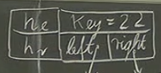 he key = 22
hr left, right